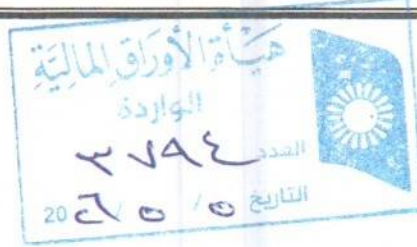 هيأة الأوراق المالية
الواردة
العدد ٣٧٩٤
التاريخ ٥ / ٥ / 20٢٦